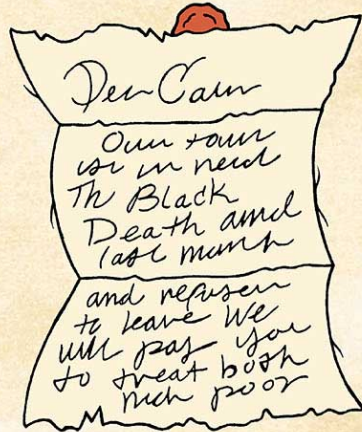 Dear Cam
Our town
is in need
Th Black
Death amd
last munth
and refuser
to leave We
will pay you
to treat both
rich poor